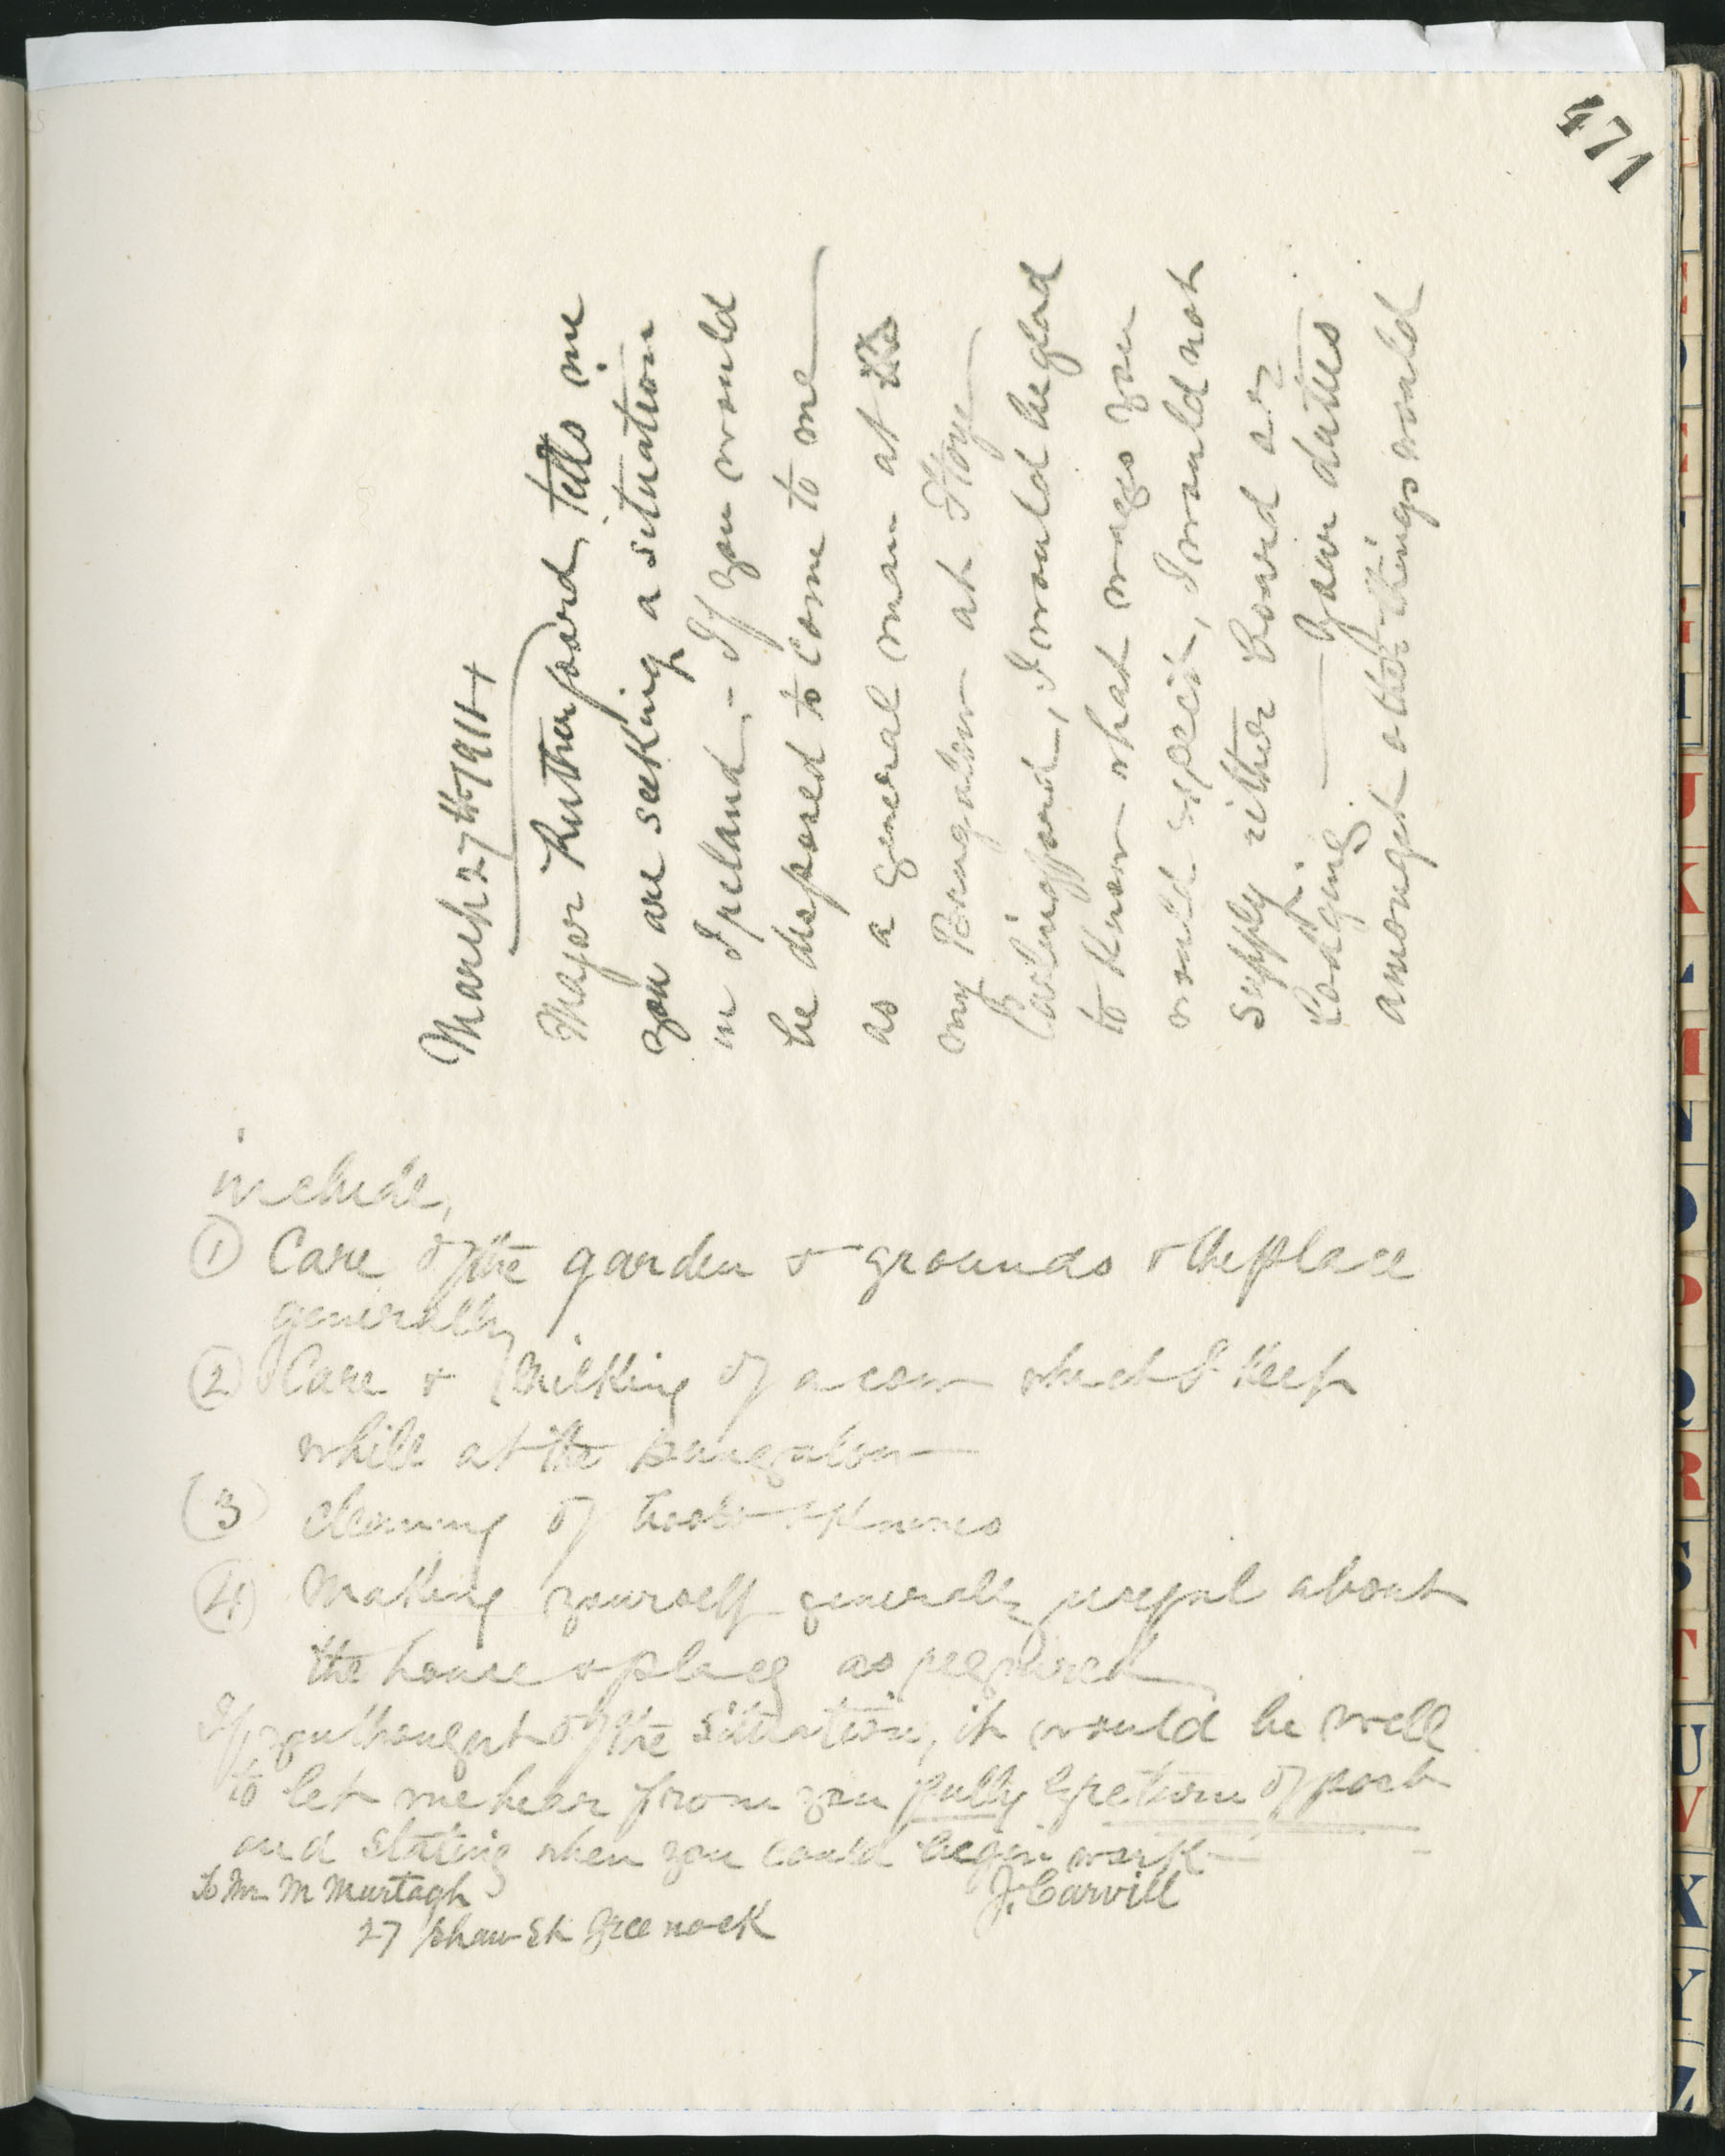 471
March 27th 1914
Major Rutherfoord, tells me
you are seeking a situation
in Ireland, - If you would
be disposed to come to me
as a general man at the
my Bungalow at
Carlingford, I would be glad
to know what wages you
would expect, I would not
supply either board or
Lodging — your duties
amongst other things would
include,
① Care of the garden & grounds & the place
generally
② Care & Milking of a cow which I keep
while at the bungalow
(3) cleaning of boots & knives
(4) Making yourself generally useful about
the house & place as required
If you thought of the situation, it would be well
to let me hear from you fully by return of post
and stating when you could begin work
J. Carvill
To Mr M Murtagh
27 Shaw St Greenock